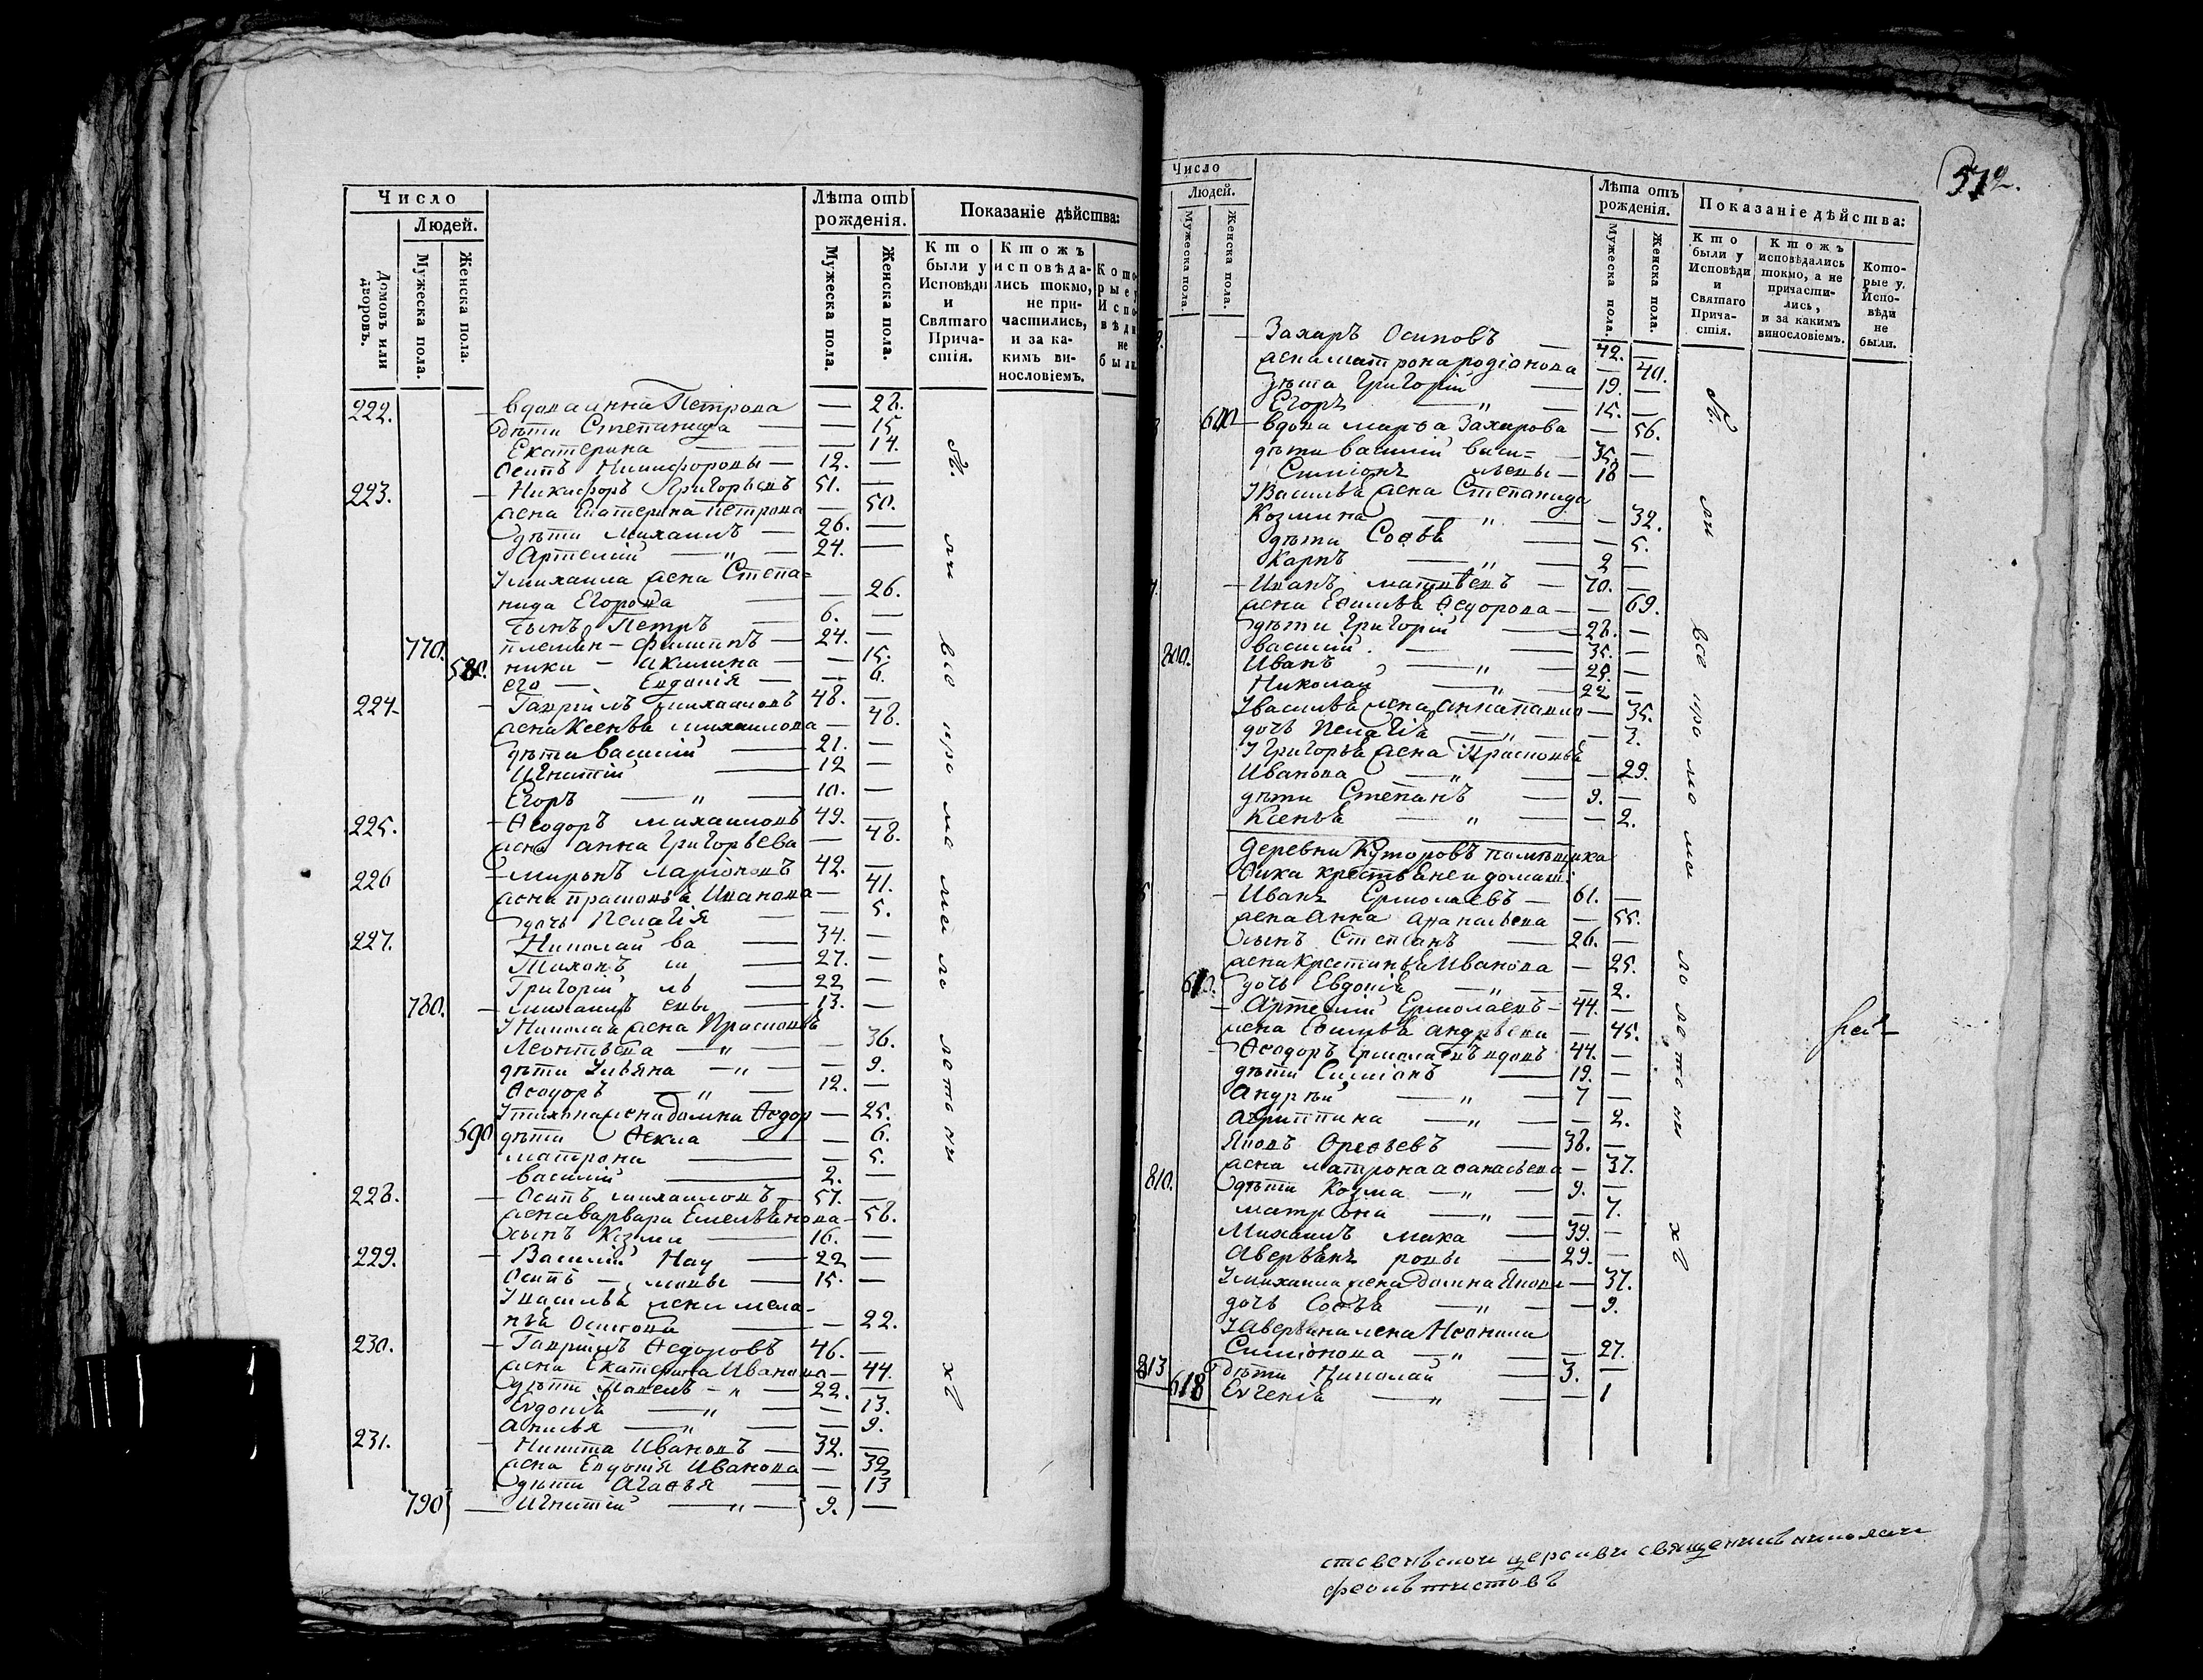 Число
Людей.
Домовъ или дворовъ.
Мужеска пола.
Женска пола.
Лѣта отъ рожденія.
Мужеска пола.
Женска пола.
Показаніе дѣйства:
Кто были у Исповѣди и Святаго Причастія.
Ктожъ исповѣдались токмо, не причастились, и за какимъ винословіемъ.
222. вдова анна Петрова — 28.
дѣти Степанида — 15
Екатерина — 14.
Осипъ Никифоровы — 12. —
223. Никифоръ Григорьевъ 51. —
жена Екатерина Петрова — 50.
дѣти Михаилъ — 26. —
Артемій — „ — 24. —
У михаила жена Степа=
нида Егорова — 26.
сынъ Петръ 6. —
770. племян – филиппъ — 24. —
580. ники – акилина — 15.
его — Евдокія — 6.
224 Гавріилъ михаиловъ 48. —
жена Ксенья михаилова — 48.
дѣти василій — 21. —
Игнатій — 12 —
Егоръ — „ — 10. —
225. Ѳеодоръ михаиловъ 49. —
жена анна Григорьева — 48.
226 миронъ ларіоновъ 42. —
жена прасковья Иванова — 41.
дочь Пелагія — 5.
227. Николай ва — 34. —
Тихонъ си — 27. —
Григорій ль — 22 —
780. михаилъ евы — 13. —
У Николая жена Прасковья
Леонтьева — „ — 36.
дѣти Ульяна — „ — 9.
Ѳеодоръ — „ — 12. —
У тихона жена домна Ѳедор — 25.
590 дѣти Ѳекла — 6.
матрона — 5.
василій — 2. —
228. Осипъ михаиловъ — 57. —
жена варвара Емельянова — 58.
сынъ Козма — 16. —
229. Василій Нау — 22 —
Осипъ — мовы — 15. —
У василья жена мела-
нья Осипова — 22.
230. Гавріилъ Ѳедоровъ 46. —
жена Екатерина Иванова — 44.
дѣти Павелъ – „ — 22. —
Евдокія — „ — 13.
Анисья — „ — 9.
231. Никита Ивановъ — 32. —
жена Евдокія Иванова — 32
дѣти Агафья — 13
790 Игнатій — „ — 9. —
бы ли все про ме меи ле леты ны хъ
572.
Число
Людей.
Мужеска пола.
Женска пола.
Лѣта отъ рожденія.
Мужеска пола.
Женска пола.
Показаніе дѣйства:
Кто были у Исповѣди и Святаго Причастія.
Ктожъ исповѣдались токмо, а не причастились, и за какимъ винословіемъ.
Которые у Исповѣди не были.
Захаръ Осиповъ — 42. —
жена матрона родіонова — 40.
дѣти Григорій — 19. —
Егоръ — „ — 15. —
600 вдова марѳа Захарова — 56.
дѣти василій васи= — 35. —
Симіонъ льевы — 18 —
У Василья жена Степанида
Козмина — „ — 32.
дѣти Софья — 5.
Карпъ — „ — 2 —
Иванъ матвѣевъ — 70. —
жена Ефимья Ѳедорова — 69.
дѣти Григорій — 28. —
800. василій. — 35. —
Иванъ — „ — 29. —
Николай — „ — 22 —
У василья жена анна павло — 35.
дочь Пелагія — „ — 3.
У Григорья жена Прасковья
Иванова — „ — 29.
дѣти Степанъ — 9. —
Ксенья — „ — 2.
деревни Куторовъ помѣщика
Фика крестьяне и домаш:
Иванъ Ермолаевъ — 61. —
жена Анна Аѳанасьева — 55.
сынъ Степанъ — 26. —
жена Крестинья Иванова — 25.
610. дочь Евдокія — „ — 2.
Артемій Ермолаевъ — 44. —
жена Ефимья андрѣева — 45.
Ѳеодоръ Ермолаевъ вдовъ 44. —
дѣти Симіонъ — 19. —
Андрѣй — „ — 7 —
агриппина — „ — 2.
Яковъ Ореѳьевъ — 38. —
жена матрона аѳанасьева — 37.
810. дѣти Козма — „ — 9. —
матрона — „ — 7.
Михаилъ мака — 39. —
Аверьянъ ровы — 29. —
У михаила жена домна Яковл — 37.
дочь Софья — „ — 9.
У Аверьяна жена Неонила
Симіонова — „ — 27.
813 дѣти Николай — 3. —
618 Евгенія — „ — 1
бы ли все про ма меи ло ле ты ны хъ
церкви священникъ николаи